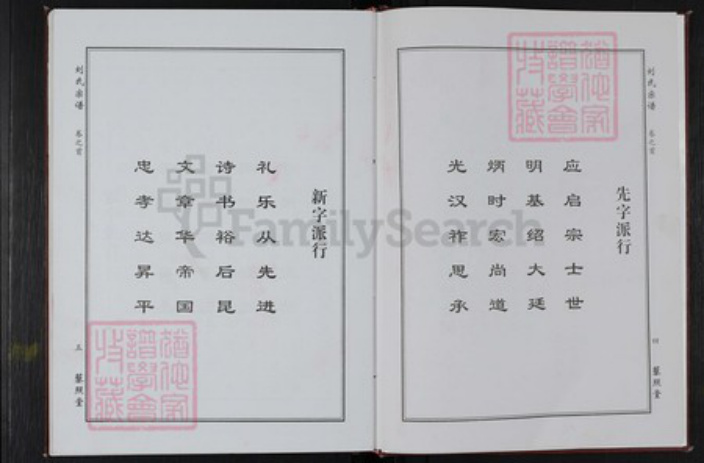 刘氏宗谱
卷之首
先字派行
应启宗士世
明基绍大廷
炳时宏尚道
光汉祚思承
四
藜照堂
新字派行
礼乐从先进
诗书裕后昆
文章华帝国
忠孝达昇平
刘氏宗谱
卷之首
五
藜照堂
FamilySearch